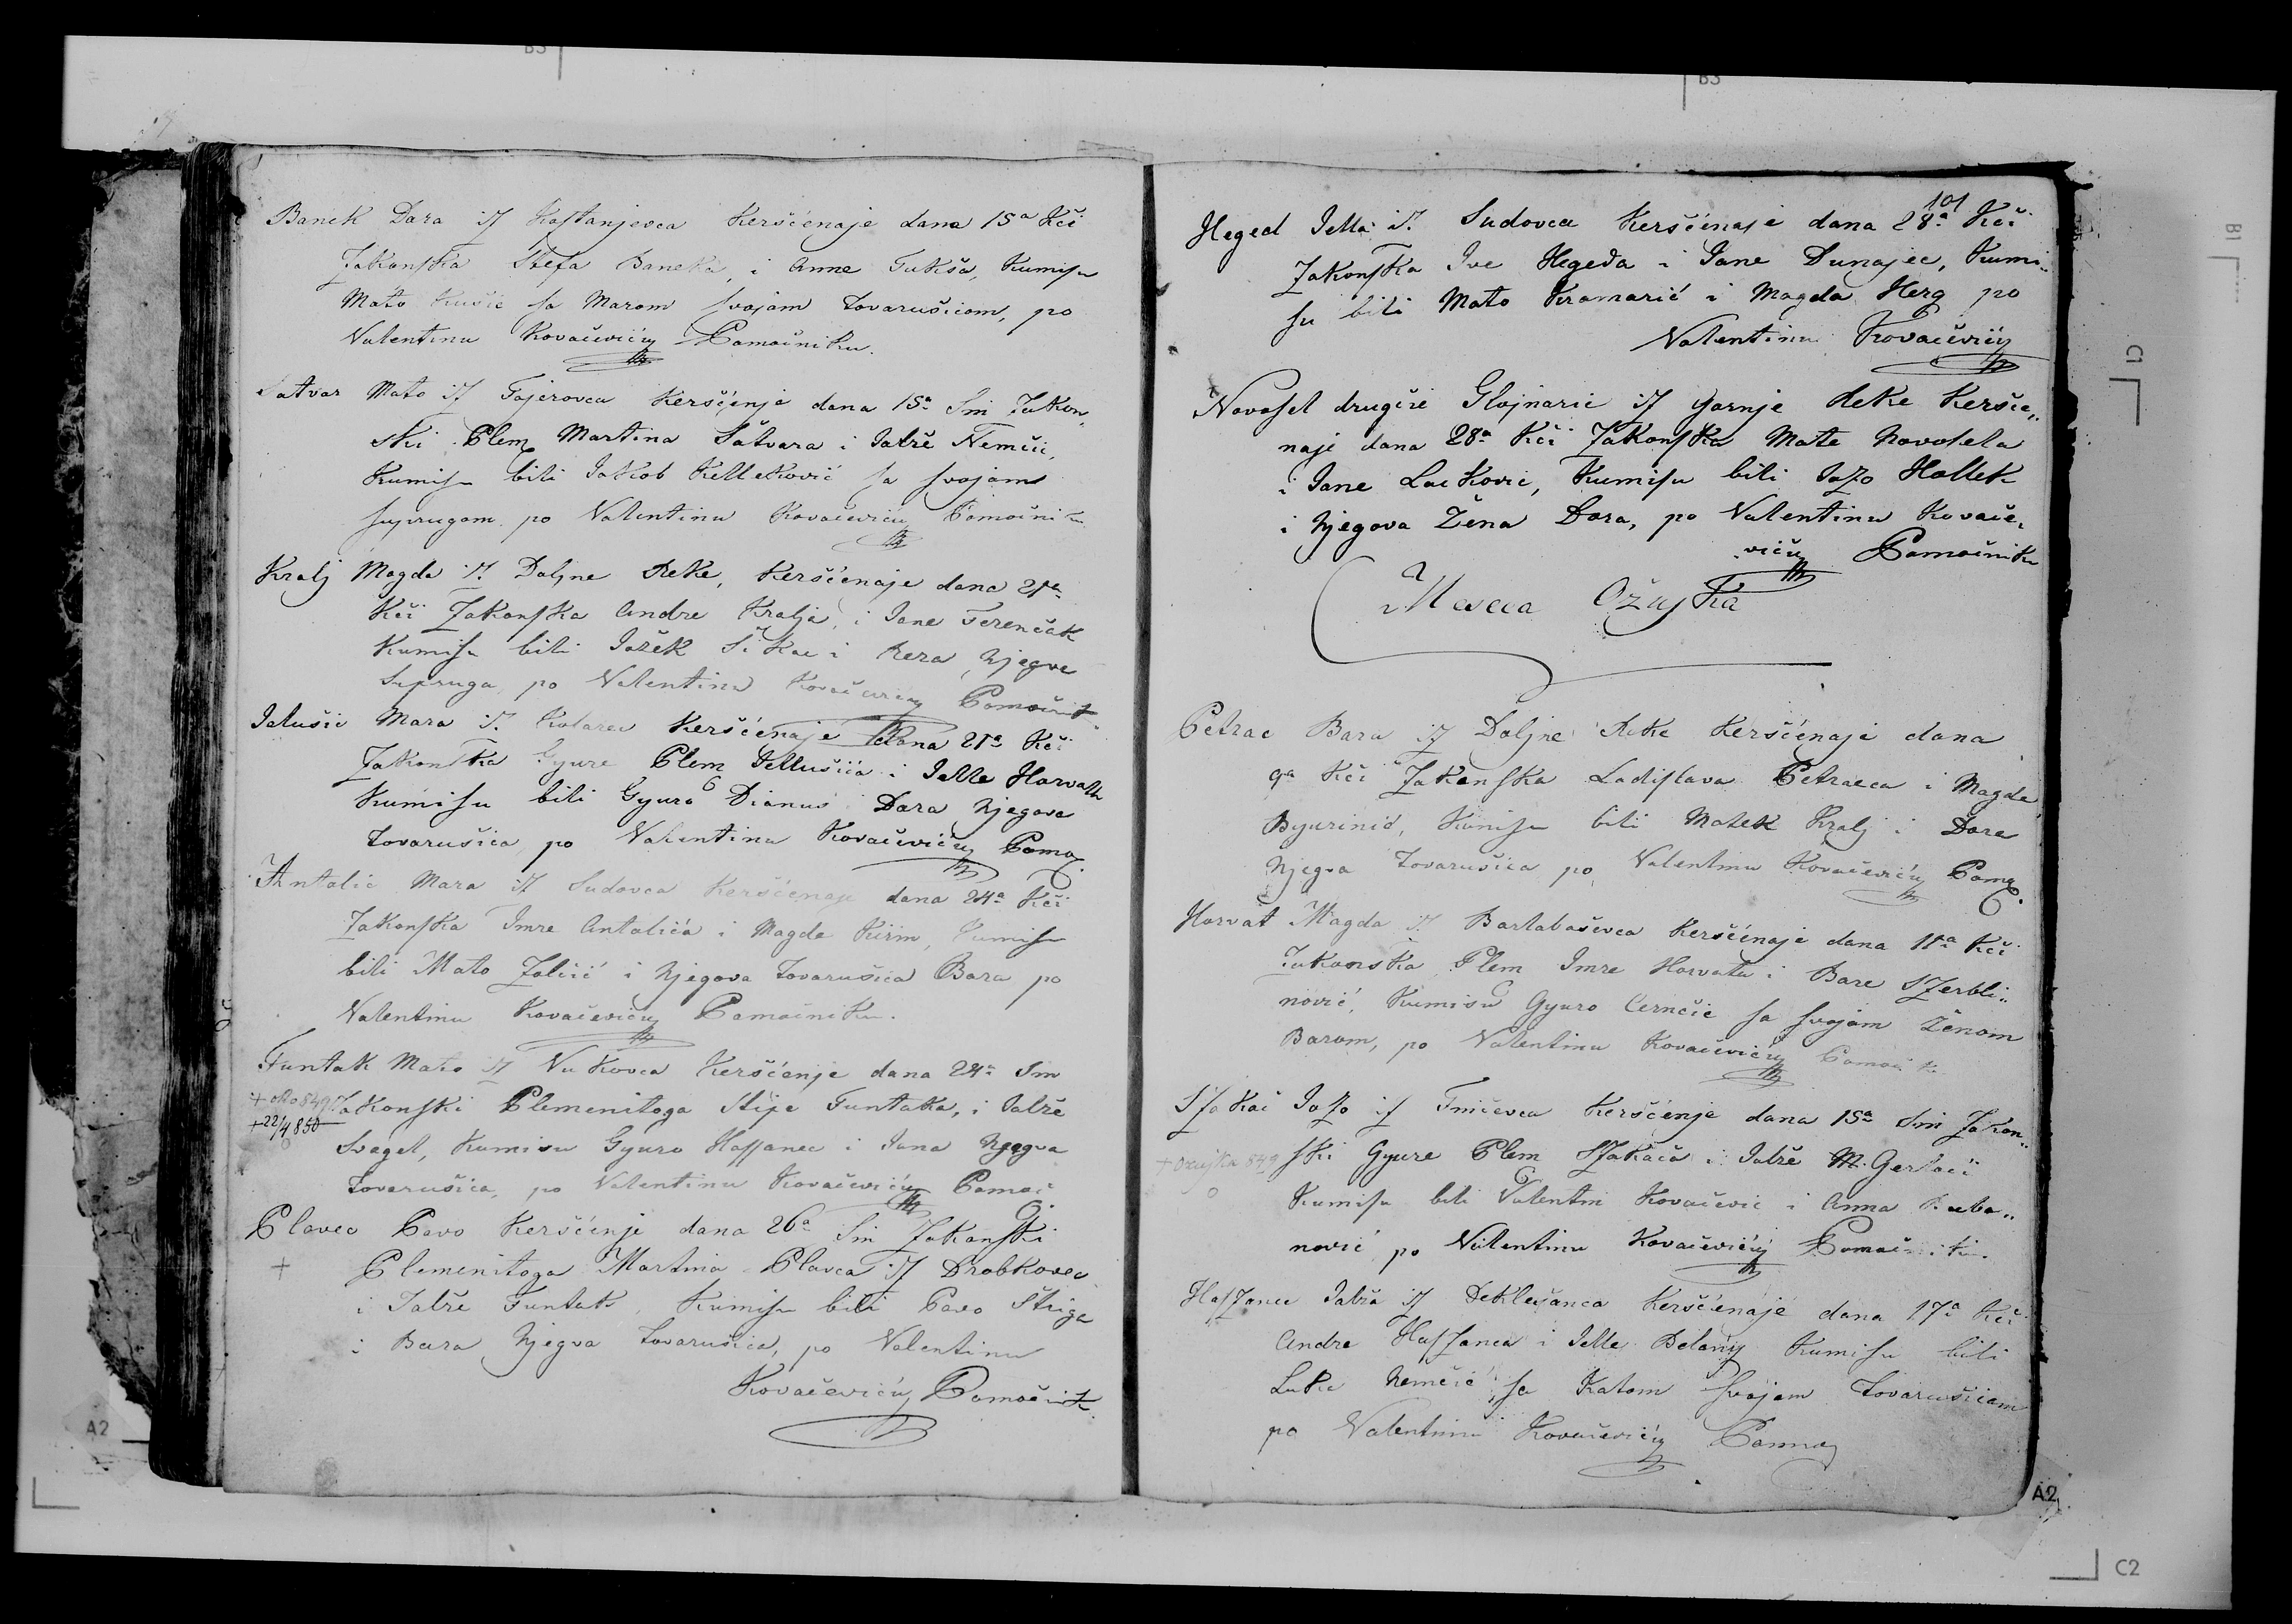 Banek Dora iſ Koſtanjevca Keršćenaje dana 15a Kći
Zakonſka Štefa Baneka, i Anne Tukša, Kumiſu
Mato Kušić ſa Marom ſvojam tovarušicom, po
Valentinu Kovačeviću Pomoćniku.
Satvar Mato iſ Fajerovca Keršćenje dana 15a Sin Zakon„
ski Plem Martina Šatvara i Jalže Nemčić,
Kumiſu bili Jakob Kelleković ſa ſvojam
ſuprugom po Valentinu Kovačeviću Pomoćniku
Kralj Magda iſ. Doljne Reke, Keršćenaje dana 21a
Kći Zakonſka Andre Kralja, i Jane Ferenčak
Kumiſu bili Jožek Sikac i Reza Njegve
Supruga po Valentinu Kovačeviću Pomoćnik
Jelušić Mara iſ. Kolarec Keršćenaje dana 21a Kći
Zakonſka Gyure Plem Jellušića i Jelle Horvath
Kumiſu bili Gyuro Dianus i Dora Njegova
tovarušica po Valentinu Kovačeviću Pomoć.
Antolic Mara iſ Sudovca Keršćenaje dana 24a Kći
Zakonſka Imre Antolića i Magde Kirin, Kumiſu
bili Mato Zolčić i Njegova tovarušica Bara po
Valentinu Kovačeviću Pomoćniku.
Funtak Mato iſ Vukovca Keršćenje dana 24a Sin
+ oko 849 Zakonſki Plemenitoga Stipe Funtaka, i Jalže
+ 22/4 850
Svagel, Kumisu Gyuro Haſſanec i Jana Njegva
tovarušica, po Valentinu Kovačeviću Pomoć.
Plavec Pavo Keršćenje dana 26a Sin Zakonſki
+ Plemenitoga Martina Plavca iſ Drobkovec
i Jalže Funtak, Kumiſu bili Pavo Štriga
i Bara Njegva tovarušica, po Valentinu
Kovačeviću Pomoćnik
101
Heged Jella iſ. Sudovca Keršćenaje dana 28a Kći
Zakonſka Ive Hegeda i Jane Dunajec, Kumi„
ſu bili Mato Kramarić i Magda Herg po
Valentinu Kovačeviću
Novoſel drugčie Glojnaric iſ Gornje Reke Keršće„
naje dana 28a Kći Zakonſka Mate Novosela
i Jane Lacković, Kumiſu bili Jozo Hallek
i Njegova Žena Dora, po Valentinu Kovače„
viću Pomoćniku
Meseca Ožujka
Petrac Bara iſ Doljne Reke Keršćenaje dana
9a Kći Zakonſka Ladiſlava Petraca i Magde
Gyurinić, Kumiſu bili Matek Kralj i Dora
Njegva tovarušica po Valentinu Kovačeviću Pomoć.
Horvat Magda iſ. Bartaboševca Keršćenaje dana 11a Kći
Zakonska Plem Imre Horvata i Bare SZerbli„
nović, Kumisu Gyuro Cernčić ſa ſvojam Ženom
Barom, po Valentinu Kovačeviću
SZakač Jozo iſ Finičevca Keršćenje dana 15a Sin Zakon„
+ Ožujka 849 ſki Gyure Plem SZakača i Jalže M. Gerlaći
Kumiſu bili Valentin Kovačević i Anna
nović po Valentinu Kovačeviću Pomoćniku.
HaſZanec Jalža iſ Deklešanca Keršćenaje dana 17a Kći
Andre HaſZanca i Jelle Belany Kumiſu bili
Luka Nemčić ſa Katom ſvojam tovarušicam
po Valentinu Kovačeviću Pomoć